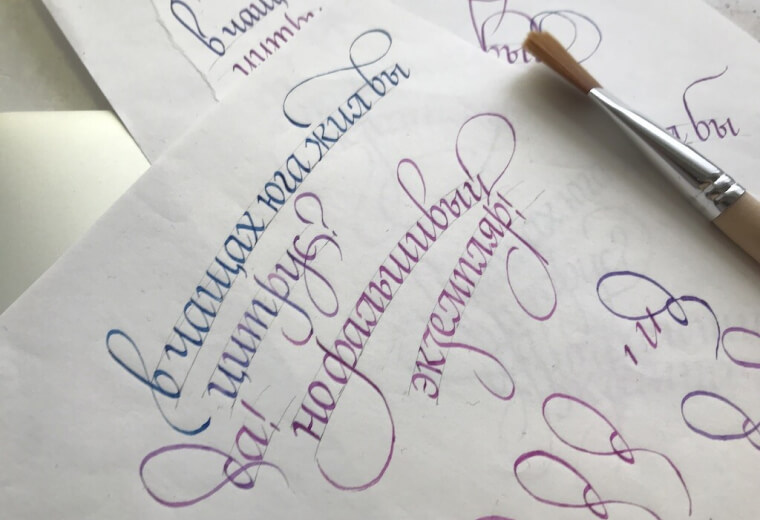 в чащ
бы
бы
в чащах юга жил бы
цитрус?
да!
но фальшивый
экземпляр!